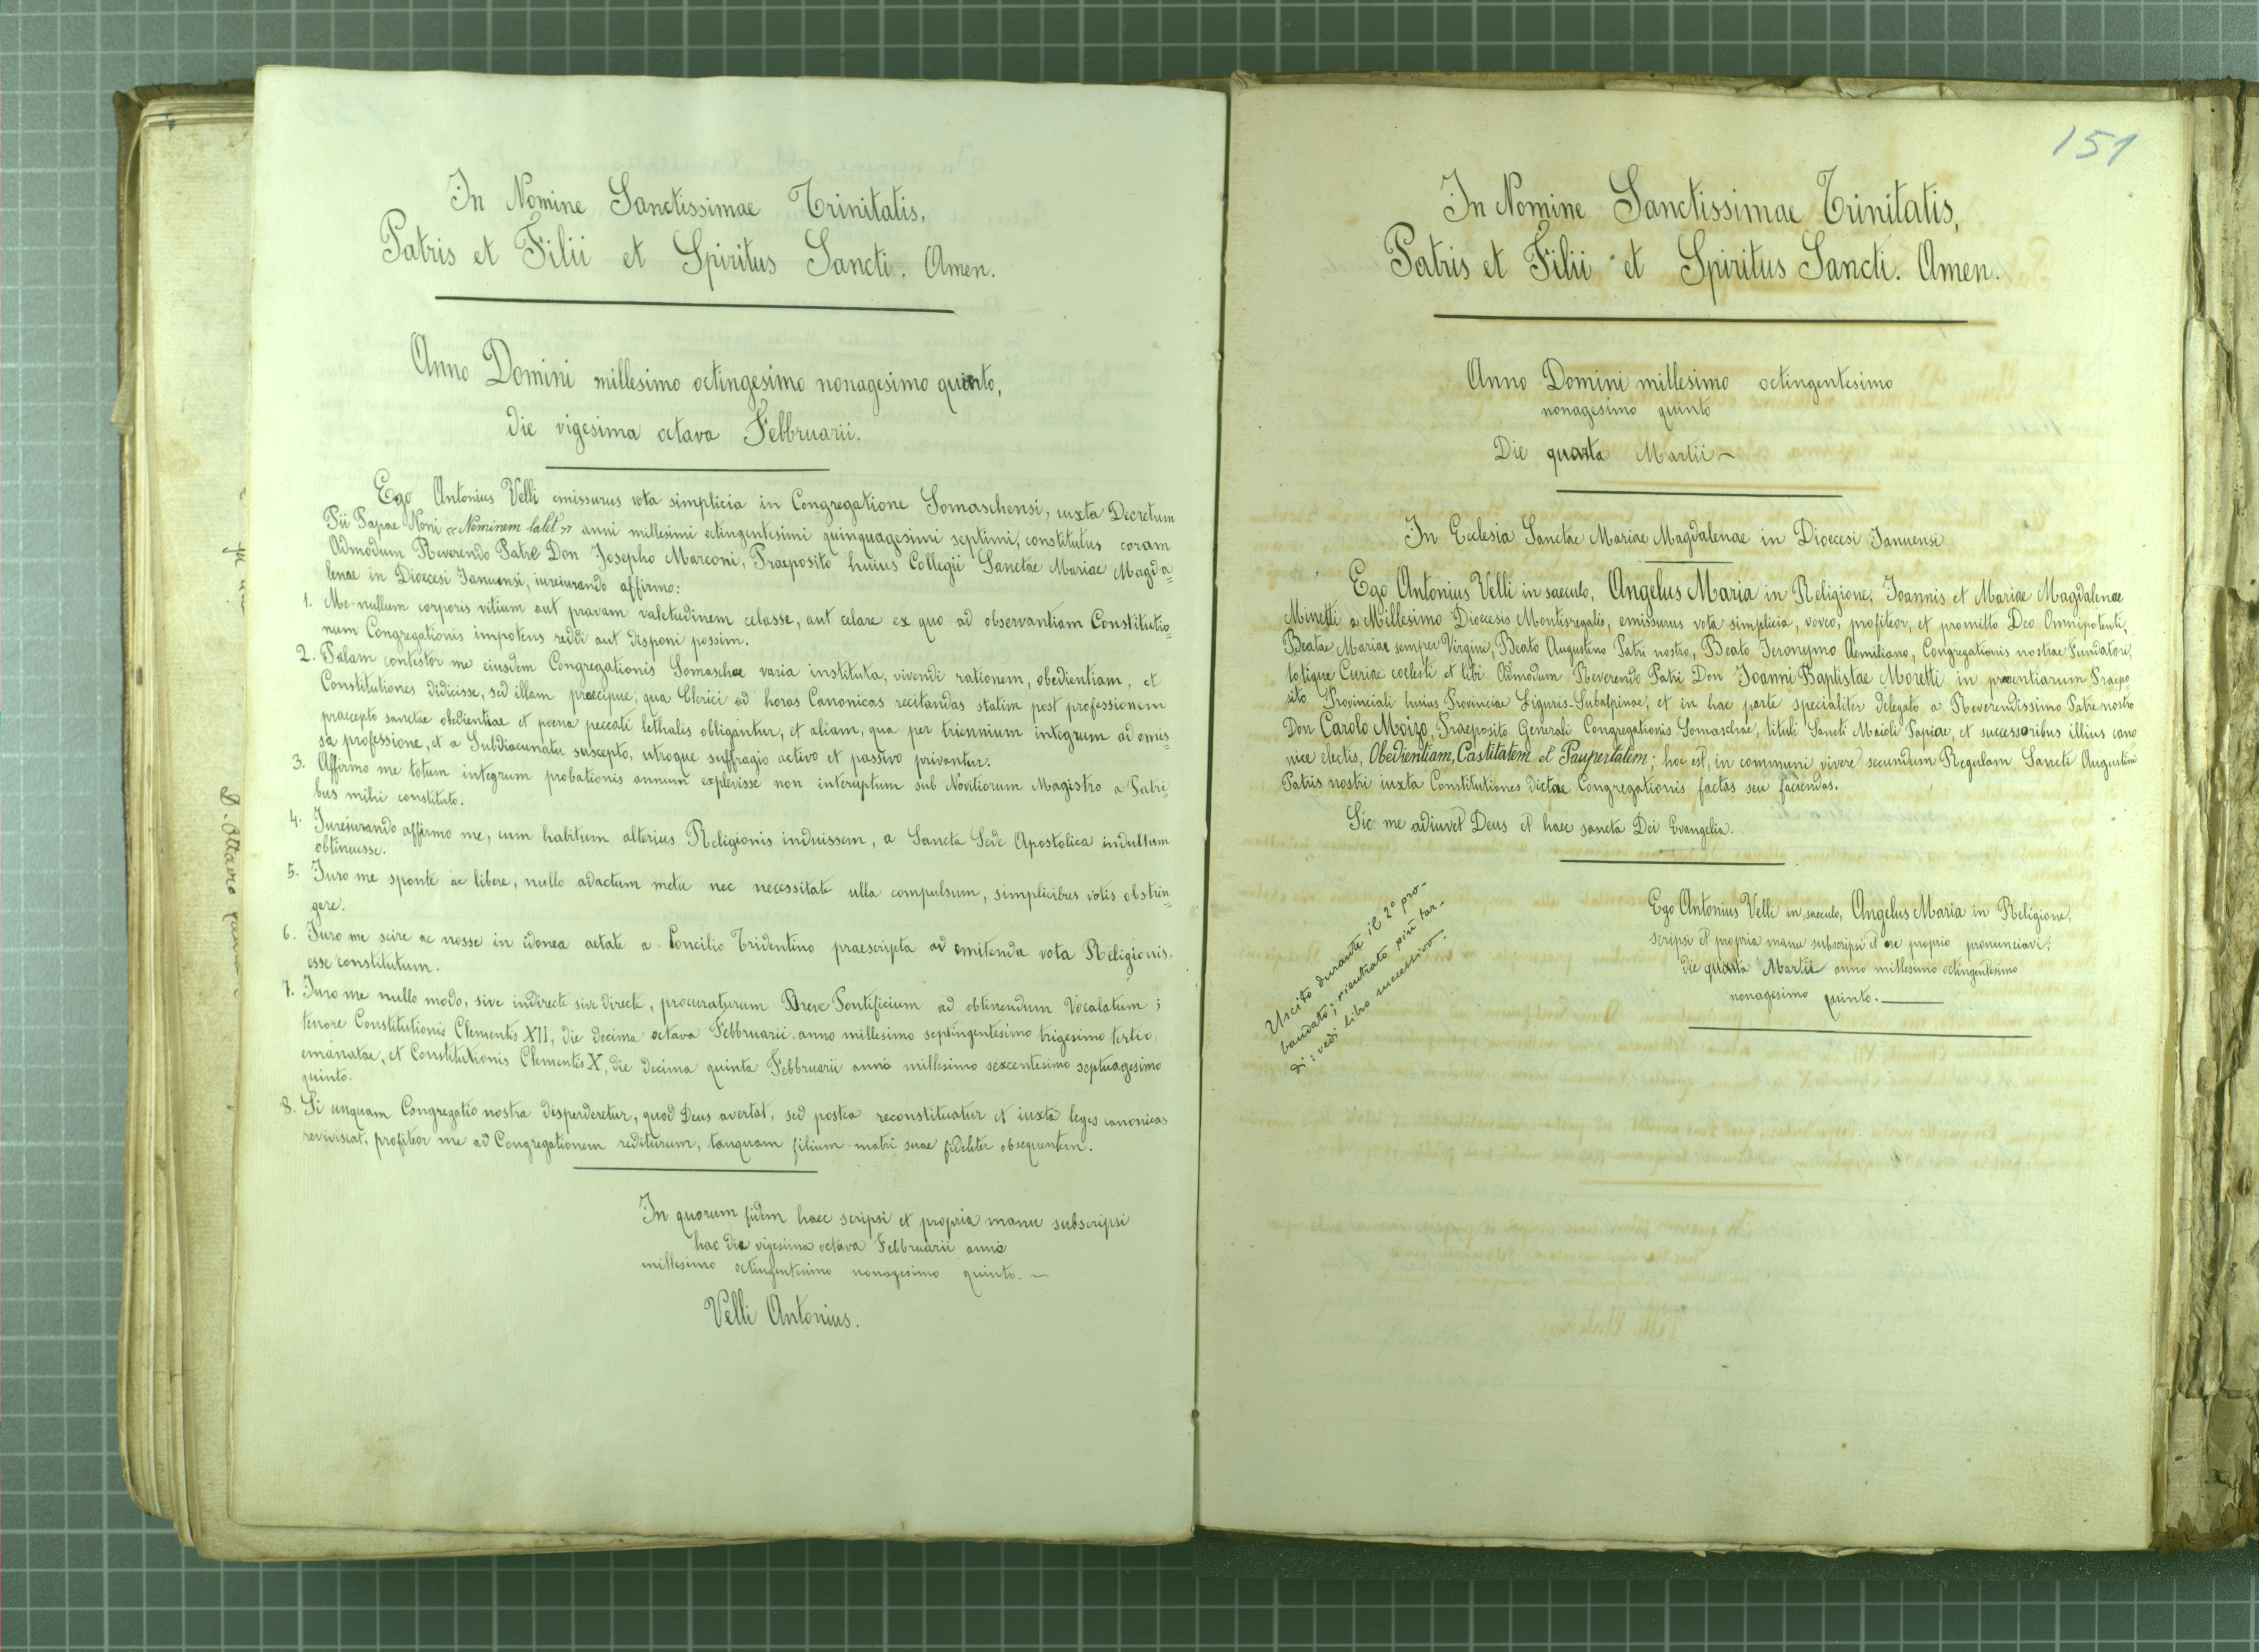 In Nomine Sanctissimae Trinitatis,
Patris et Filii et Spiritus Sancti. Amen.
Anno Domini millesimo octingesimo nonagesimo quinto,
die vigesima octava Febbruarii.
Ego Antonius Velli emissurus vota simplicia in Congregatione Somaschensi, iuxta Decretum
Pii Papae Noni «Neminem latet» anni millesimi octingentesimi quinquagesimi septimi, constitutus coram
Admodum Reverendo Patre Don Josepho Marconi, Praeposito huius Collegii Sanctae Mariae Magda=
lenae in Dioecesi Januensi, iureiurando affirmo:
1. Me nullum corporis vitium aut pravam valetudinem celasse, aut celare ex quo ad observantiam Constitutio=
num Congregationis impotens reddi aut disponi possim.
2. Palam contestor me eiusdem Congregationis Somaschae varia instituta, vivendi rationem, obedientiam, et
Constitutiones didicisse, sed illam praecipue; qua Clerici ad horas Canonicas recitandas statim post professionem
praecepto sanctae obedientiae et poena peccati lethalis obligantur, et aliam, qua per triennium integrum ad emis=
sa professione, et a Subdiaconatu suscepto, utroque suffragio activo et passivo privantur.
3. Affirmo me totum integrum probationis annum explevisse non interuptum sub Novitiorum Magistro a Patri=
bus mihi constituto.
4. Iureiurando affirmo me, cum habitum alterius Religionis induissem, a Sancta Sede Apostolica indultum
obtinuesse.
5. Iuro me sponte ac libere, nullo adactum metu nec necessitate ulla compulsum, simplicibus votis obstrin=
gere.
6. Iuro me scire ac nosse in idonea aetate a Concilio Tridentino praescripta ad emitenda vota Religionis,
esse constitutum.
7. Iuro me nullo modo, sive indirecte sive directe, procuraturum Breve Pontificium ad obtinendum Vocalatum;
tenore Constitutionis Clementis XII, die decima octava Febbruarii anno millesimo septingentesimo trigesimo tertio,
emanatae, et Constitutionis Clementis X, die decima quinta Febbruarii anno millesimo sexcentesimo septuagesimo
quinto.
8. Si unquam Congregatio nostra disperderetur, quod Deus avertat, sed postea reconstituatur et iuxta leges canonicas
reviviscat, profiteor me ad Congregationem rediturum, tanquam filium matri suae fideliter obsequentem.
In quorum fidem haec scripsi et propria manu subscripsi
hac die vigesima octava Febbruarii anno
millesimo octingentesimo nonagesimo quinto.—
Velli Antonius.
151
In Nomine Sanctissimae Trinitatis,
Patris et Filii et Spiritus Sancti. Amen.
Anno Domini millesimo octingentesimo
nonagesimo quinto
Die quarta Martii—
In Ecclesia Sanctae Mariae Magdalenae in Dioecesi Ianuensi
Ego Antonius Velli in saeculo, Angelus Maria in Religione, Joannis et Mariae Magdalenae
Minetti a Millesimo Dioecesis Montisregalis, emissurus vota simplicia, voveo, profiteor, et promitto Deo Omnipotenti,
Beatae Mariae semper Virgini, Beato Augustino Patri nostro, Beato Ieronymo Aemiliano, Congregationis nostrae Fundatori,
totique Curiae coelesti et tibi Admodum Reverendo Patri Don Joanni Baptistae Moretti in praesentiarum Praepo=
sito Provinciali huius Provinciae Liguris-Subalpinae, et in hac parte specialiter delegato a Reverendissimo Patre nostro
Don Carolo Moizo, Praeposito Generali Congregationis Somaschae, tituli Sancti Maioli Papiae, et successoribus illius cano
nice electis, Obedientiam, Castitatem et Paupertatem; hoc est, in communi vivere secundum Regulam Sancti Augustini
Patris nostri iuxta Constitutiones dictae Congregationis factas seu faciendas.
Sic me adiuvet Deus et haec sancta Dei Evangelia.
Ego Antonius Velli in saeculo, Angelus Maria in Religione,
scripsi et propria manu subscripsi et ore proprio pronunciavi,
die quarta Martii anno millesimo octingentesimo
nonagesimo quinto.
Uscito durante il 2º pro-
bandato; rientrato più tar-
di: vedi libro successivo.